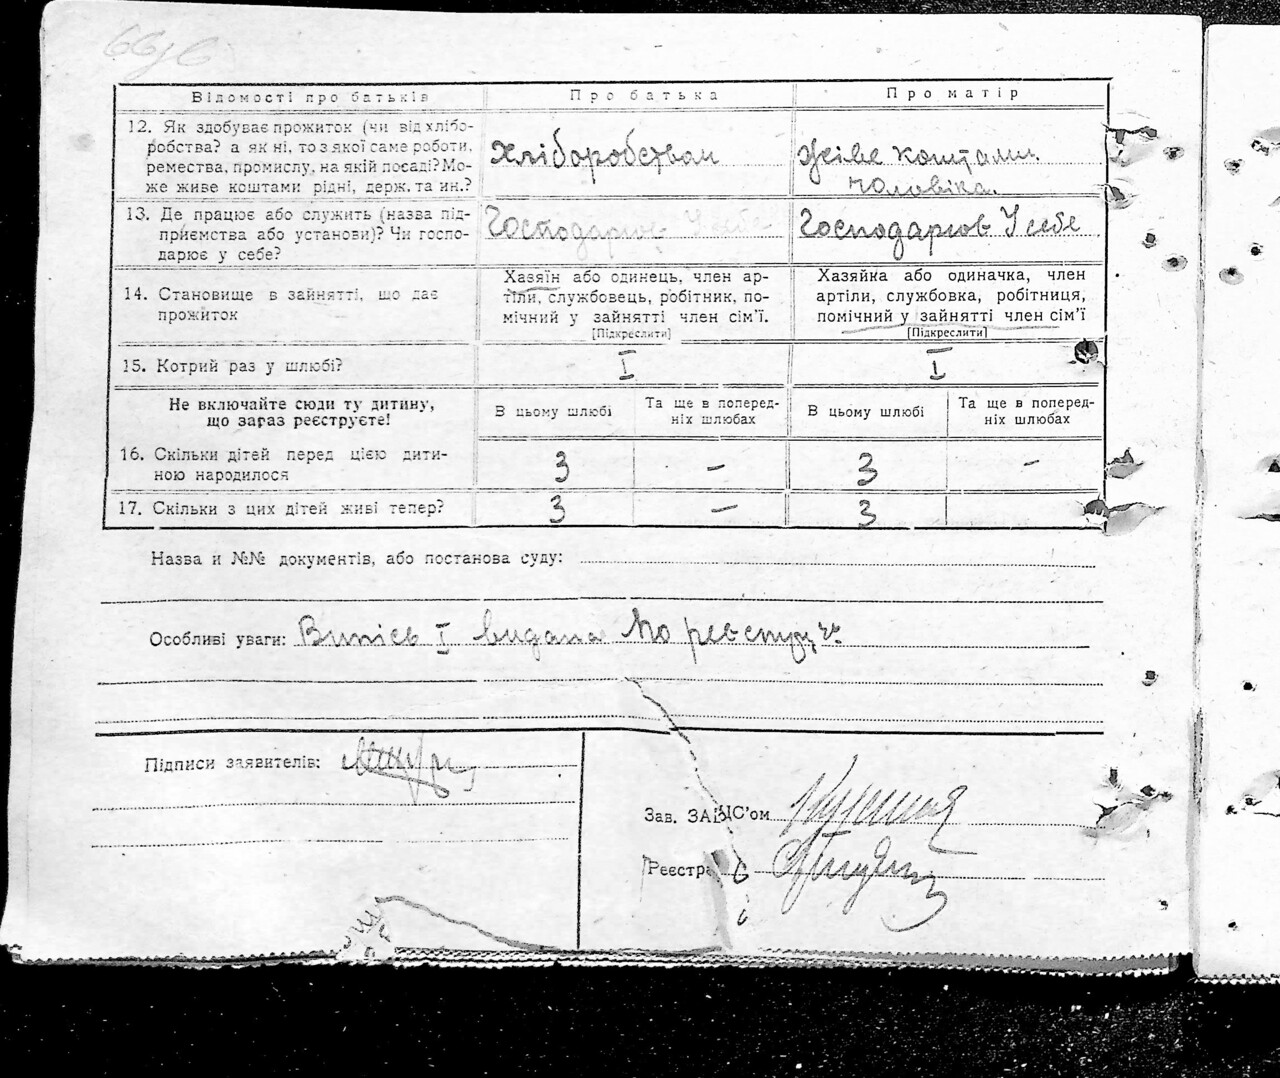 Відомості про батьків Про батька Про матір
12. Як здобуває прожиток (чи від хлібо-
робства? а як ні, то з якої саме роботи,
ремества, промислу, на якій посаді? Мо-
же живе коштами рідні, держ. та ин.?
Хліборобством
Живе коштами
чоловіка.
13. Де працює або служить (назва під-
приємства або установи)? Чи госпо-
дарює у себе?
Господарюв У себе
Господарюв У себе
14. Становище в зайнятті, що дає
прожиток
Хазяїн або одинець, член ар-
тіли, службовець, робітник, по-
мічний у зайнятті член сім'ї.
[Підкреслити]
Хазяйка або одиначка, член
артіли, службовка, робітниця,
помічний у зайнятті член сім'ї
[Підкреслити]
15. Котрий раз у шлюбі? I I
Не включайте сюди ту дитину,
що зараз реєструєте!
В цьому шлюбі
Та ще в поперед-
ніх шлюбах
В цьому шлюбі
Та ще в поперед-
ніх шлюбах
16. Скільки дітей перед цією дити-
ною народилося
3 – 3 –
17. Скільки з цих дітей живі тепер? 3 – 3
Назва и №№ документів, або постанова суду:
Особливі уваги: Випись I видана по реєстру
Підписи заявителів:
Зав. ЗАГС'ом
Реєстра